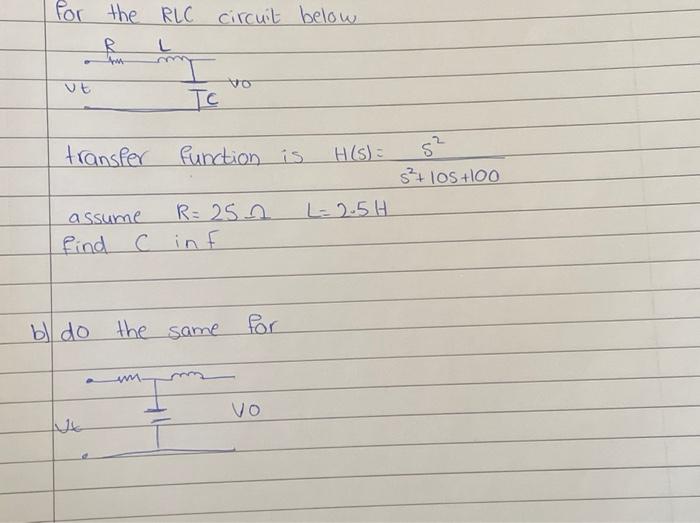 for the RLC circuit below
R L
Vt Vo
C
transfer function is H(s) = s²
s²+10s+100
assume R=25Ω L=2.5H
find C in f
b) do the same for
Vo
Vt